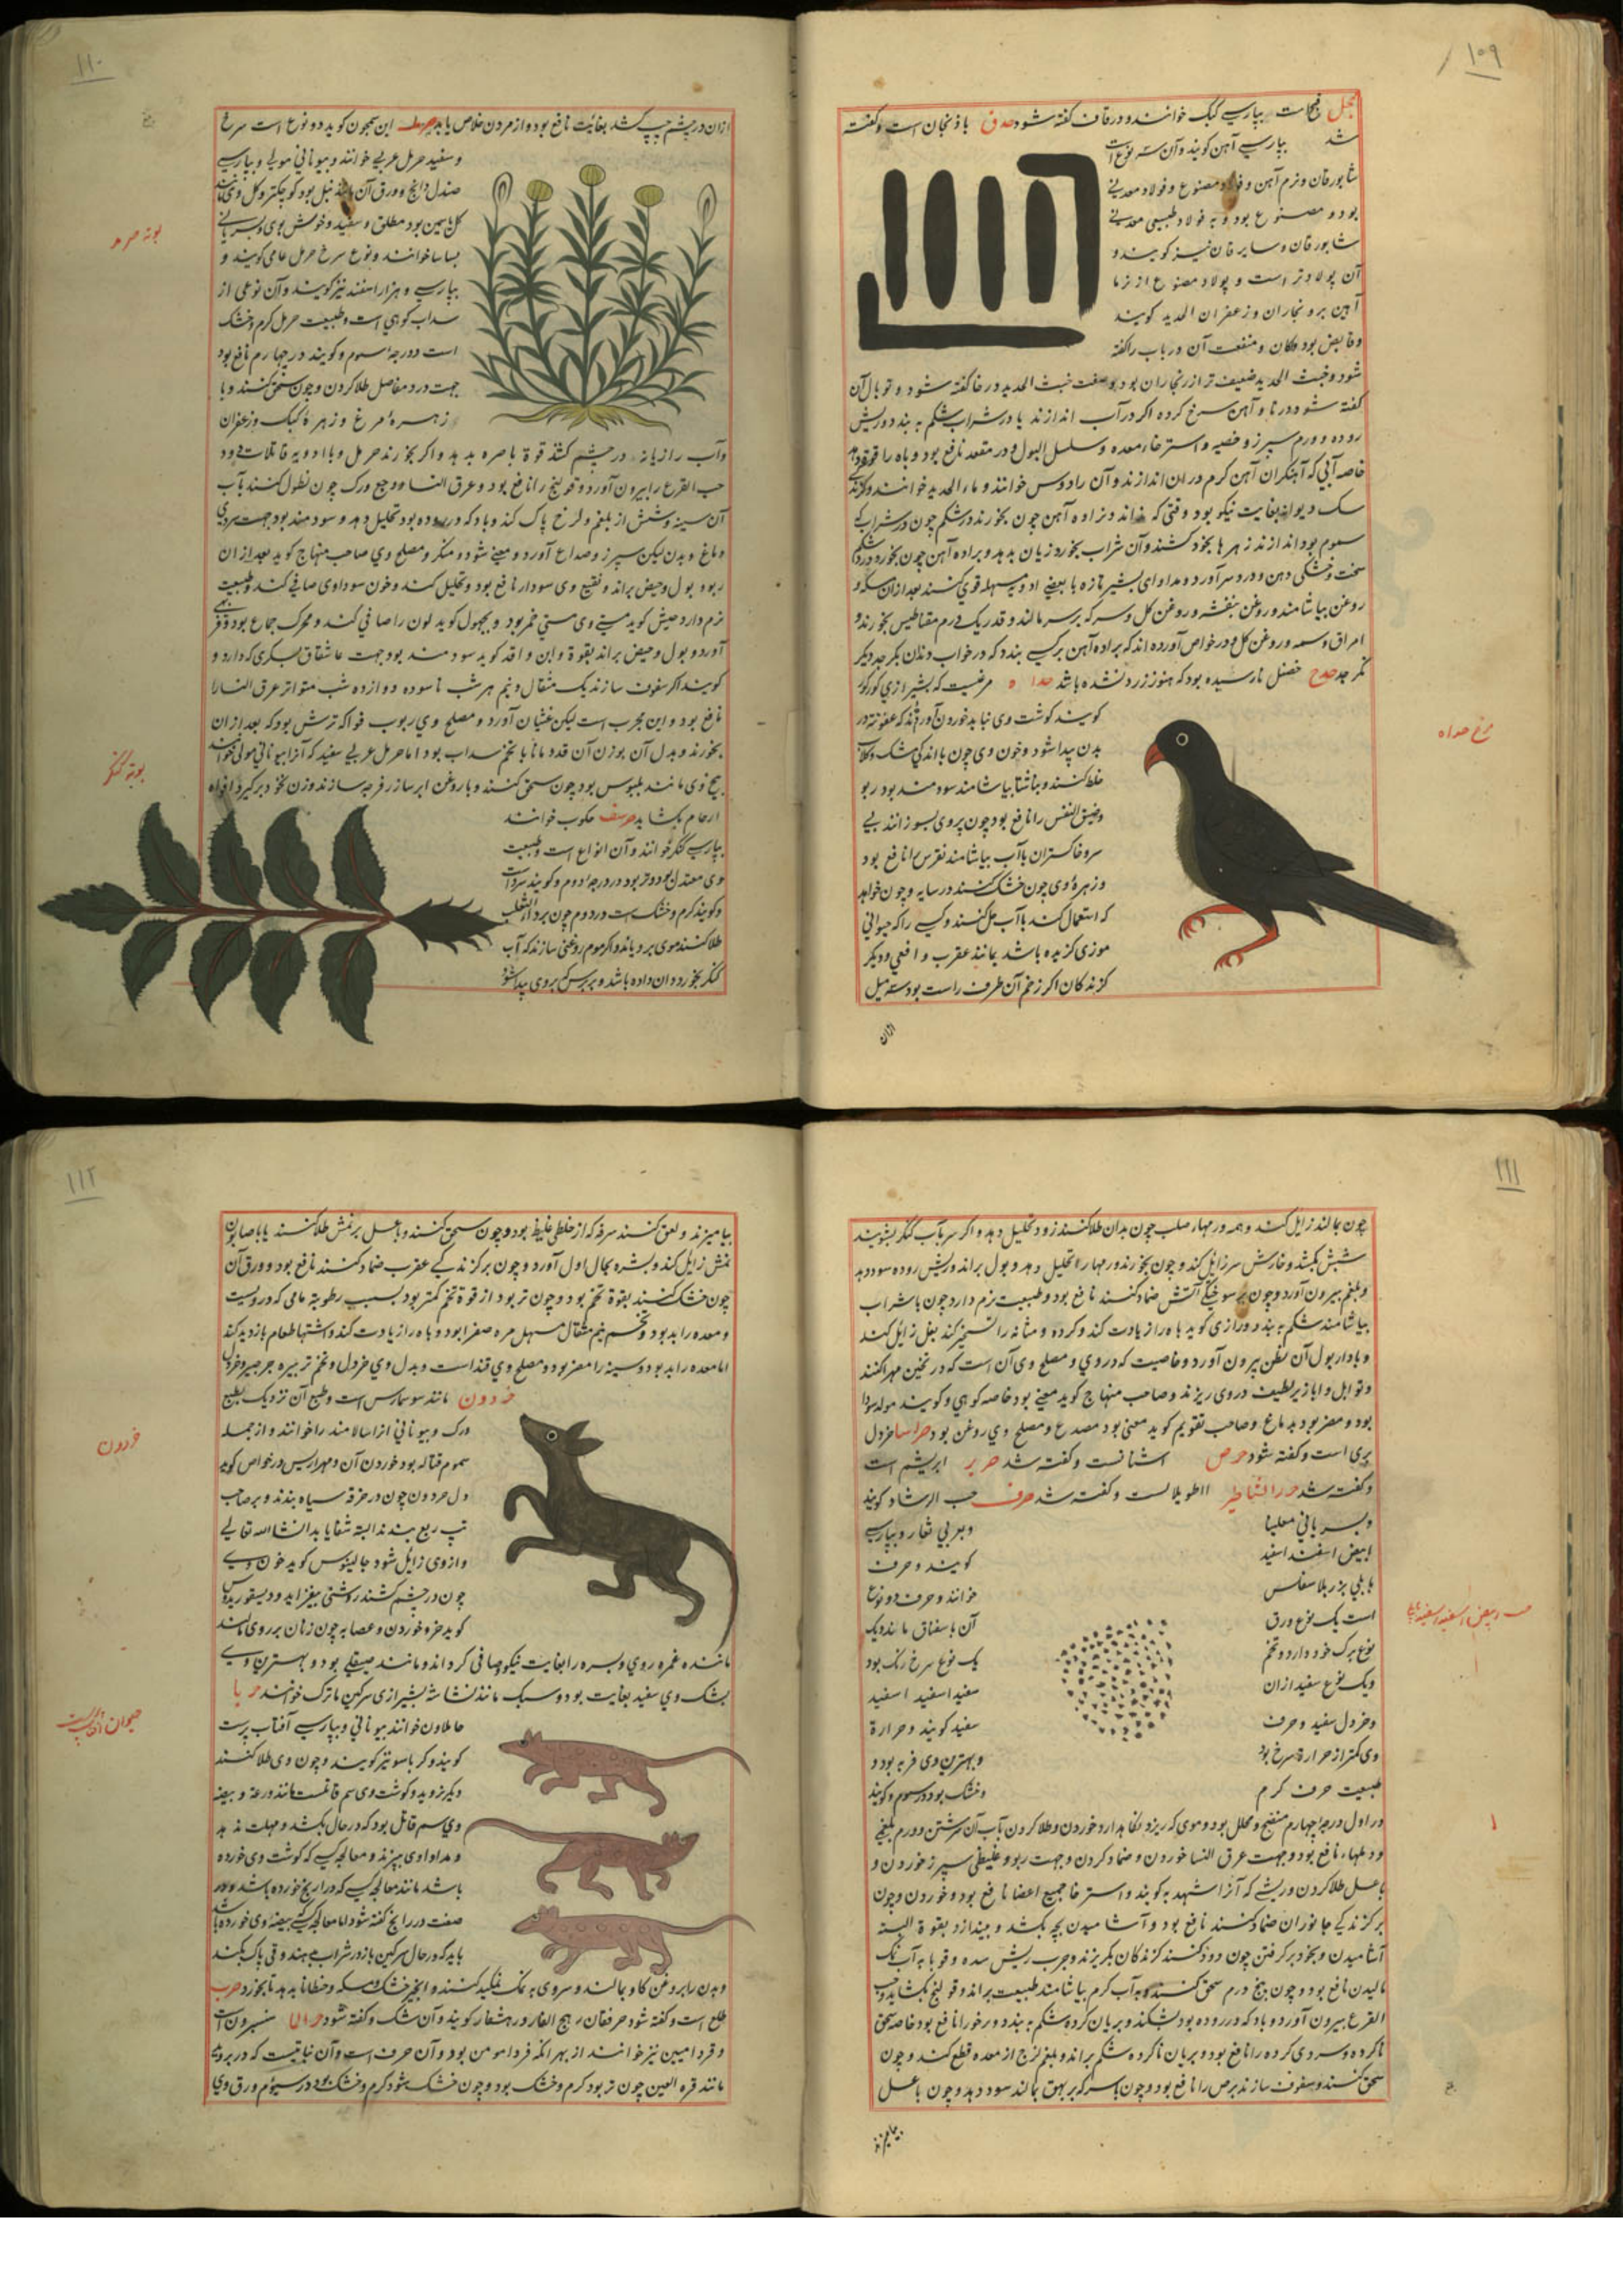 ۱۰۹
حجل قبجات بپارسی کبک خوانند و در قاف گفته شود حدق باذنجان است و گفته
شد بپارسی آهن گویند و آن سه نوع است
شابورقان و نرم آهن و فولاد مصنوع و فولاد معدنی
بود و مصنوع بود و به فولاد طبیعی معدنی
شابورقان و سایرقان نیز گویند و
آن پولادتر است و پولاد مصنوع از نرما
آهن بر و زنجاران و زعفران الحدید گویند
و قابض بود و منفعت آن در باب را گفته
شود و خبث الحدید ضعیف تر از زنجاران بود و صفت خبث الحدید در خا گفته شود و توبال آن
گفته شود در تا و آهن سرخ کرده اگر در آب اندازند یا در شراب شکم به بندد و ریش
روده و ورم سپرز و هیضه و استرخاء معده و سلسل البول و در مقعد نافع بود و باه را قوة دهد
خاصه آبی که آهنگران آهن گرم در ان اندازند و آن را دوس خوانند و ماء الحدید خوانند و گزند
سک دیوانه بغایت نیکو بود
سموم بود اندازند زهرها بخود کشند و آن شراب بخورد زیان ندهد و براده آهن چون بخورد درد شکم
سخت و خشکی دهن و درد سر آورد و مداوای بشیر تازه با بعضی ادویه مسهله قوی کنند بعد از ان مسکه و
روغن بیاشامند و روغن بنفشه و روغن گل و سرکه بر سر مالند و قدر یک درم مقناطیس بخورند و
و روغن گل و در خواص آورده اند که براده آهن بر کسی بندد که در خواب دندان بکرجد دیگر
نکرجد حدج حنظل نارسیده بود که هنوز زرد نشده باشد حداه مرغیست که بشیرازی کورکور
گویند گوشت وی نباید خوردن
بدن پیدا شود و خون وی چون با اندکی مشک و گلاب
خلط کنند و بناشتا بیاشامند سودمند بود ربو
و ضیق النفس را نافع بود چون پر وی بسوزانند بی
سر و خاکستر ان با آب بیاشامند نقرس را نافع بود
و زهره وی چون خشک کنند در سایه و چون خواهد
که استعمال کند با آب حل کنند و کسی را که حیوانی
موذی گزیده باشد مانند عقرب و افعی و دیگر
گزندگان اگر زخم آن طرف راست بود سه میل
ازان
مرغ حداه
۱۱۰
ازان در چشم چپ کشد بغایت نافع بود و از مردن خلاص یابد حرمل ابن سمجون گوید دو نوع است سرخ
و سفید حرمل عربی خوانند و بیونانی مولی و بپارسی
صندل دانج و ورق آن مانند نیل بود کوچکتر و گل وی مانند
گل یاسمین بود مطلق و سفید و خوش بوی و بسریانی
بساسا خوانند و نوع سرخ حرمل عامی گویند و
بپارسی هزار اسفند نیز گویند و آن نوعی از
سداب کوهی است و طبیعت حرمل گرم و خشک
است در درجه سوم و گویند در چهارم نافع بود
جهت درد مفاصل طلا کردن و چون سحق کنند و با
زهره مرغ و زهرۀ کبک و زعفران
و آب رازیانه در چشم کشند قوة باصره بدهد و اگر بخورند حرمل و با ادویه قاتلات دود
حب القرع را بیرون آورد و قولنج را نافع بود و عرق النسا و وجع ورک چون نطول کنند بآب
آن سینه و شش از بلغم لزج پاک کند و باد که در روده بود تحلیل دهد و سودمند بود جهت سردی
دماغ و بدن لیکن سپرز و صداع آورد و مغثی شود و مسکر و مصلح وی صاحب منهاج گوید بعد از ان
ربوب بول و حیض براند و نقیع وی سودا را نافع بود و تحلیل کند و خون سوداوی صافی کند و طبیعت
نرم دارد حبیش گوید مستی وی مستی خمر بود و مجهول گوید لون را صافی کند و محرک جماع بود و
آورد و بول و حیض براند بقوة و ابن واقد گوید سودمند بود جهت عاشقان بسکری که دارد و
گویند اگر سفوف سازند یک مثقال و نیم هر شب تا سوده دوازده شب متواتر عرق النسا را
نافع بود و این مجرب است لیکن غثیان آورد و مصلح وی ربوب فواکه ترش بود که بعد از ان
بخورند و بدل آن بوزن آن قردمانا یا تخم سداب بود اما حرمل عربی سفید که آنرا بیونانی مولی خوانند
بیخ وی مانند بلبوس بود چون سحق کنند و با روغن ایرسا زن فرجه سازند و زن بخود برگیرد افواه
ارحام بگشاید حرشف حکوب خوانند
بپارسی کنگر خوانند و آن انواع است و طبیعت
وی معتدل بود و تر بود در درجه دوم و گویند سرد است
و گویند گرم و خشک است در دوم چون بر داء الثعلب
طلا کنند موی برویاند و اگر موم روغنی سازند که آب
کنگر بخورد ان داده باشد و بر برص که بر روی پیدا شود
بوته حرمل
بوته کنگر
۱۱۱
چون بمالند زایل کند و همه ورمهاء صلب چون بدان طلا کنند زود تحلیل دهد و اگر سر بآب کنگر بشویند
شپش بکشد و خارش سر زایل کند و چون بخورند ورمها را تحلیل دهد و بول براند و ریش روده سود دهد
و بلغم بیرون آورد و چون بر سوختگی آتش ضماد کنند نافع بود و طبیعت نرم دارد چون با شراب
بیاشامند شکم به بندد و رازی گوید باه را زیادت کند و گرده و مثانه را تسخین کند بغل زایل کند
و با دار بول آن نطن بیرون آورد و خاصیت که در وی و مصلح وی آن است که در پختن مهرا کنند
و توابل و ابازیر لطیف در وی ریزند و صاحب منهاج گوید مغثی بود خاصه کوهی و گویند مولد سودا
بود و مضر بود بدماغ و صاحب تقویم گوید مغثی بود مصدع و مصلح وی روغن بود حراسا خردل
بری است و گفته شود حرض اشنانست و گفته شد حریر ابریشم است
و گفته شد اطویلالست و گفته شد حرف حب الرشاد گویند
و بسریانی معلیا و بعربی ثفا و بپارسی
ابیض اسفند اسفید گویند و حرف
بابلی بزر بلاسفاس خوانند و حرف دو نوع
است یک نوع ورق آن باسفناق ماند و یک
نوع برک خود دارد و تخم یک نوع سرخ رنگ بود
و یک نوع سفید ازان سفید اسفید اسفید
و خردل سفید و حرف سفید گویند و حرارة
وی کمتر از حرارة سرخ بود و بهترین وی فربه بود و
طبیعت حرف گرم و خشک بود در سوم و گویند
در اول درجه چهارم منضج و محلل بود و موی که ریزد نگاه دارد خوردن و طلا کردن بآب آن سرشتن و ورم بلغمی
و دملها نافع بود و جهت عرق النسا خوردن و ضماد کردن و جهت ربو و غلیظی سپرز خوردن و
با عسل طلا کردن و ریشی که آنرا شهدیه گویند و استرخا جمیع اعضا نافع بود و خوردن و چون
بر گزندگی جانوران ضماد کنند نافع بود و آشامیدن بچه بکشد و بیندازد بقوة البته
آشامیدن و بخود برگرفتن چون دود کنند گزندگان بگریزند و جرب ریش شده و قوبا به آب نمک
مالیدن نافع بود و چون پنج درم سحق کنند به آب گرم بیاشامند طبیعت براند و قولنج بگشاید و حب
القرع بیرون آورد و باد که در روده بود بشکند و بریان کرده شکم به بندد و زحیر را نافع بود خاصه سحق
ناکرده و سردی گرده را نافع بود و بریان ناکرده شکم براند و بلغم لزج از معده قطع کند و چون
سحق کنند و سفوف سازند برص را نافع بود و چون با سرکه بر بهق بمالند سود دهد و چون با عسل
بیامیزند
۱۱۲
بیامیزند و لعق کنند سرفه که از خلطی غلیظ بود و چون سحق کنند و با عسل بر نمش طلا کنند یا با صابون
نمش زایل کند و بشره بحال اول آورد و چون بر گزندگی عقرب ضماد کنند نافع بود و ورق آن
چون خشک کنند بقوة تخم بود و چون تر بود از قوة تخم کمتر بود بسبب رطوبة مایی که در ویست
و معده را بد بود و تخم نیم مثقال مسهل مره صفرا بود و باه را زیادت کند و اشتها طعام بازدید کند
اما معده را بد بود و سینه را مضر بود و مصلح وی قند است و بدل وی خردل و تخم تره تیزه جرجیر و خردل
حردون مانند سوسمارست و طبع آن نزدیک بطبع
ورل و بیونانی انرا سالامندرا خوانند و از جمله
سموم قتاله بود خوردن آن و مهراریس در خواص گوید
دل حردون چون در خرقه سیاه بندند و بر صاحب
تب ربع بندند البته شفا یابد انشاالله تعالی
و از وی زایل شود جالینوس گوید خون وی
چون در چشم کشند روشنی بیفزاید و دیسقوریدوس
گوید خرو خوردن و عصابه چون زنان بر روی مالند
ماننده غمره روی و بشره را بغایت نیکو و صافی گرداند و مانند صیقلی بود و بهترین وی
بشک وی سفید بغایت بود و سبک مانند نشاسته بشیرازی سرگین ماترک خوانند حربا
حاملاون خوانند بیونانی و بپارسی آفتاب پرست
گویند و کرباسو نیز گویند و چون وی طلا کنند
و بیضه
وی سم قاتل بود که در حال بکشد و مهلت ندهد
و مداوای بپزند و معالجه کسی که گوشت وی خورده
باشد مانند معالجه کسی که ذراریح خورده باشد و
صفت در رازیانج گفته شود اما معالجه کسی که بیضه وی خورده باشد
باید که در حال سرگین باز در شراب دهند و قی پاک بکند
و بدن را بروغن گاو بمالند و سر وی به نمک تکمید کنند و انجیر خشک و مسکه و خطائا بدهد تا بخورد حرب
طلع است و گفته شود حرفقان رهج الفار و رهشفار گویند و آن شک و گفته شود
و قردامیین نیز خوانند از بهر آنکه فردامومن بود و آن حرف است و آن نباتیست که در بر روید
مانند قرة العین چون تر بود گرم و خشک بود و چون خشک شود گرم و خشک بود در سیوم ورق وی
حردون
حیوان آفتاب پرست